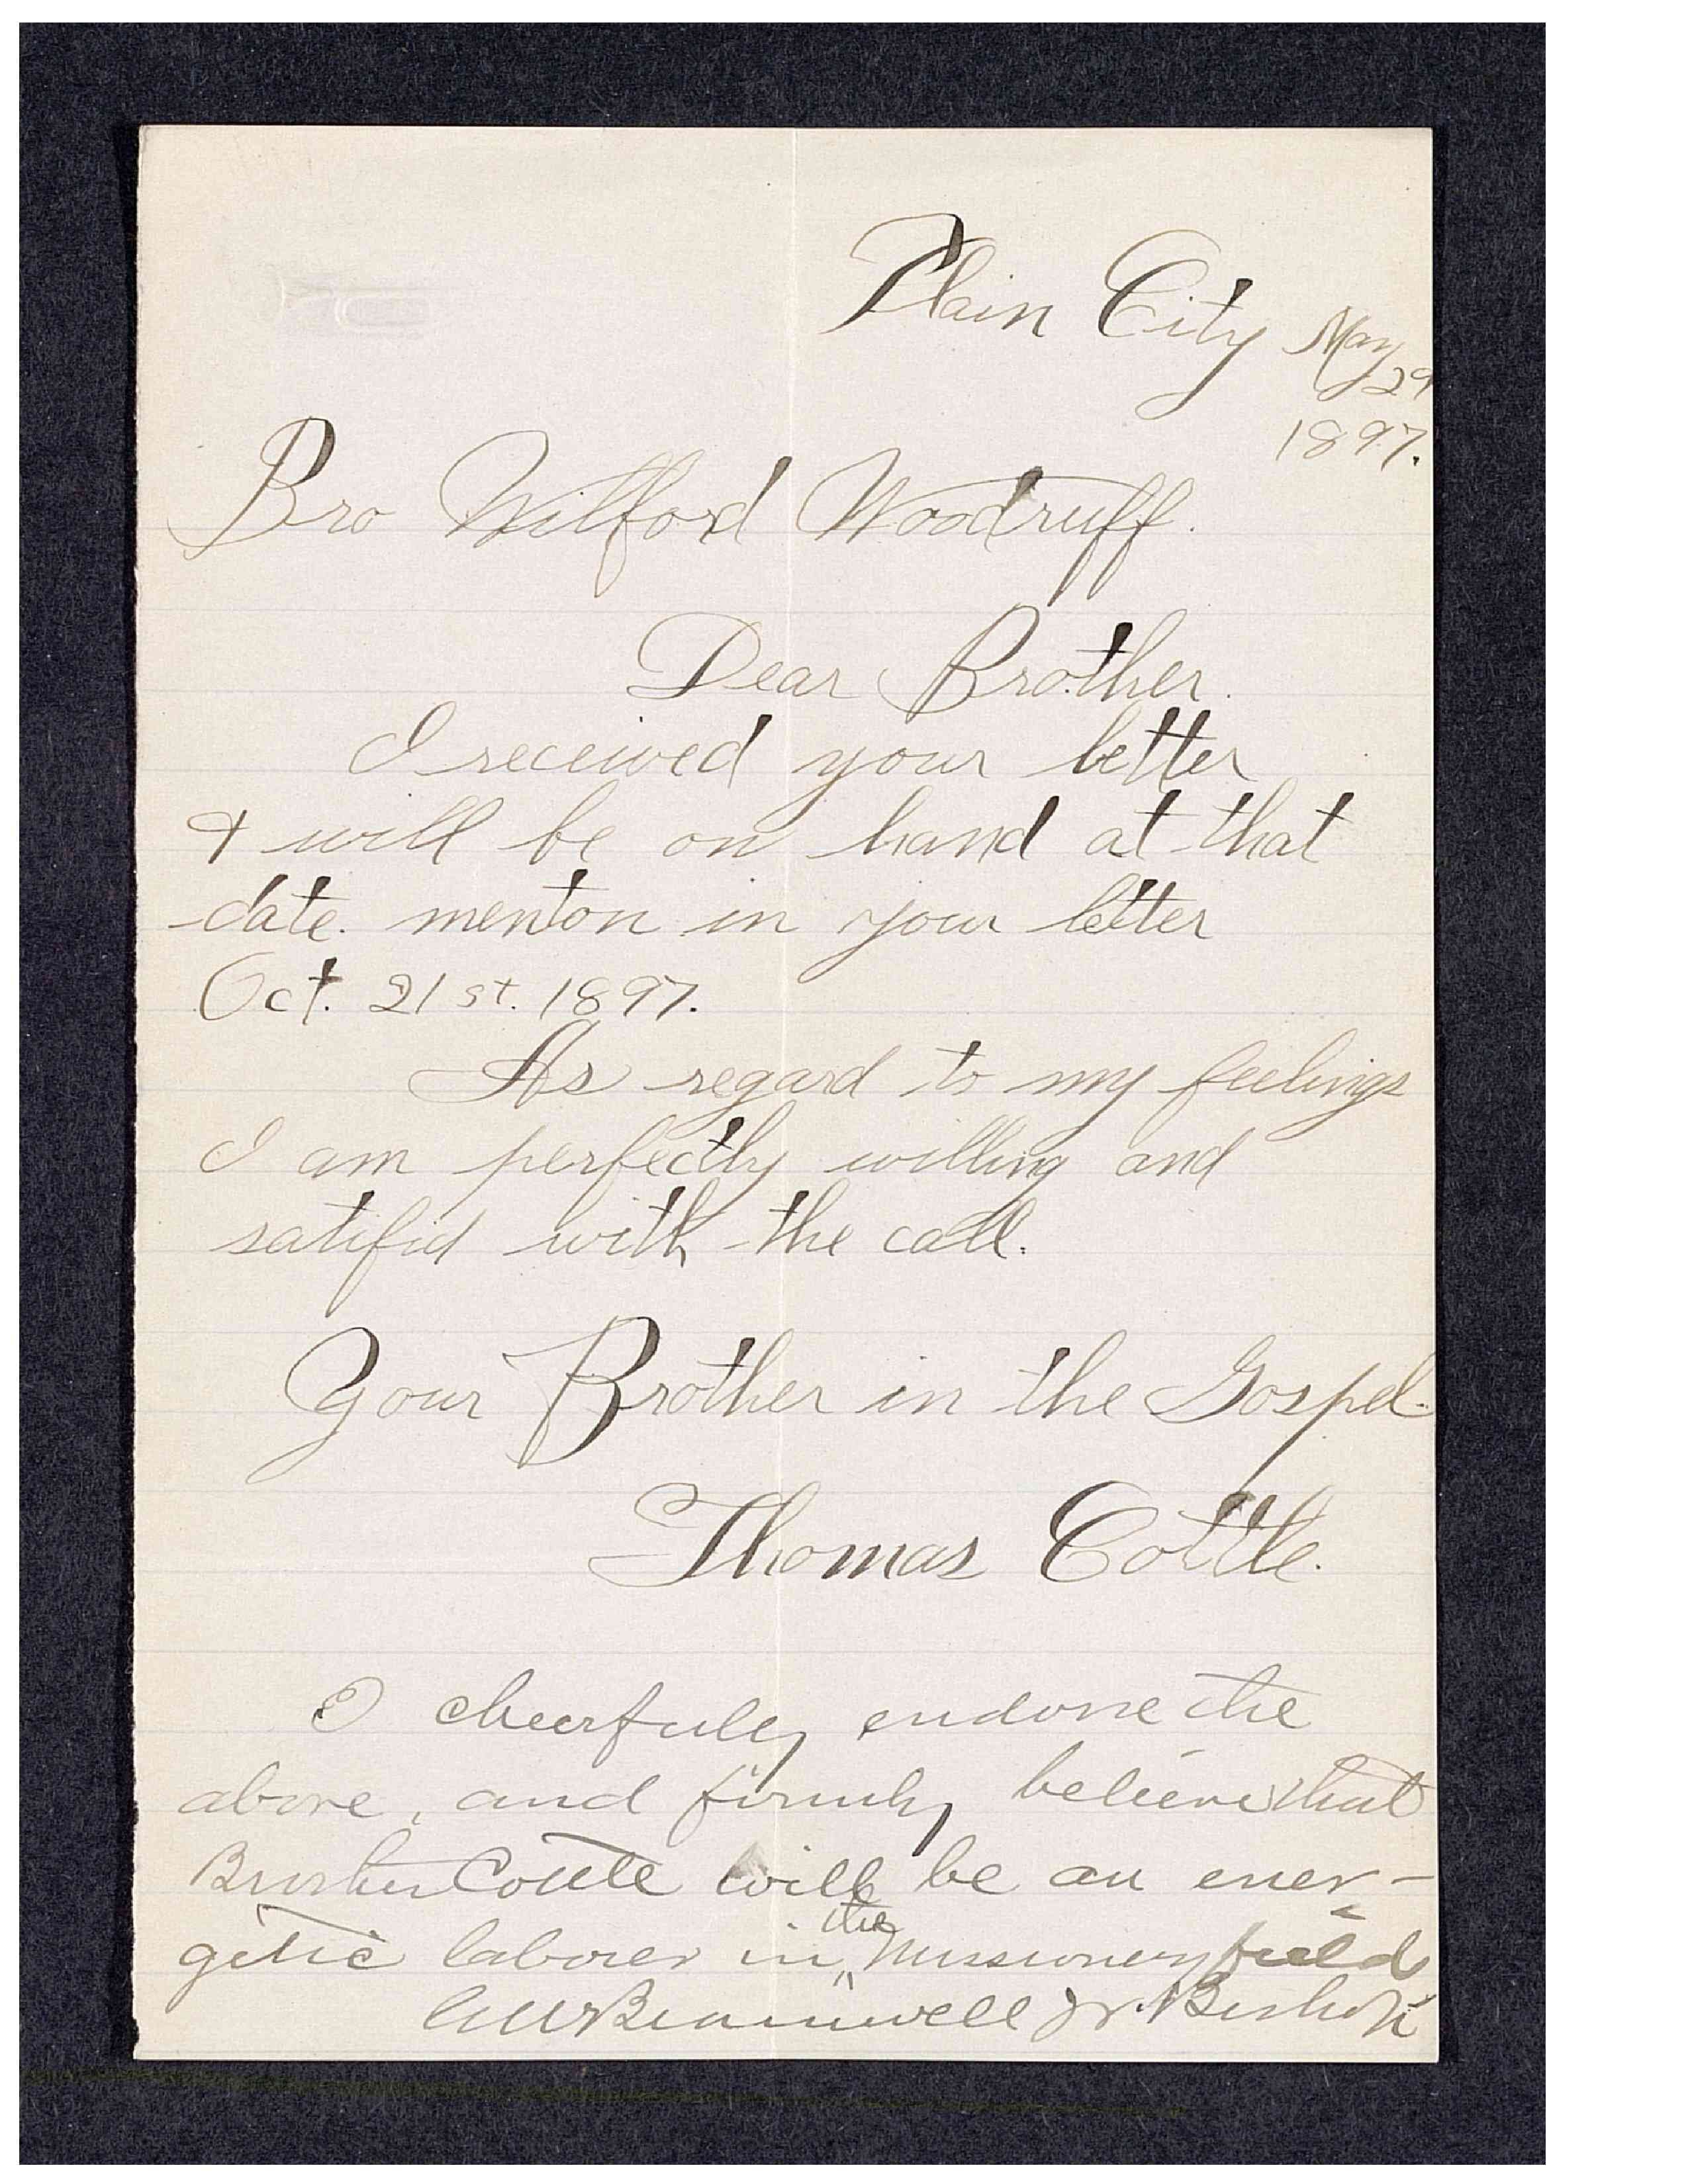 Plain City May
29
1897.
Bro Wilford Woodruff.
Dear Brother.
I received your letter
& will be on hand at that
date. menton in your letter
Oct. 21st. 1897.
As regard to my feelings
I am perfectly willing and
satifid with the call.
Your Brother in the Gospel.
Thomas Cottle.
I cheerfuly endorse the
above, and firmly believe that
Brother Cottle will be an ener-
the
getic laborer in missionery field
Bramwell Jr. Bishop